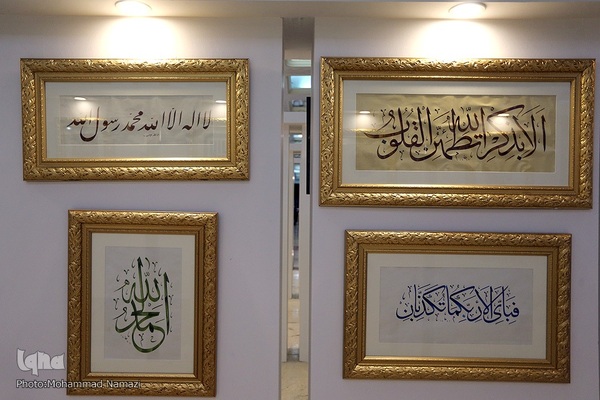 لا اله الا الله محمد رسول الله
الا بذکر الله تطمئن القلوب
الحمد لله
فبای الاء ربکما تکذبان
iqna
Photo:Mohammad Namazi